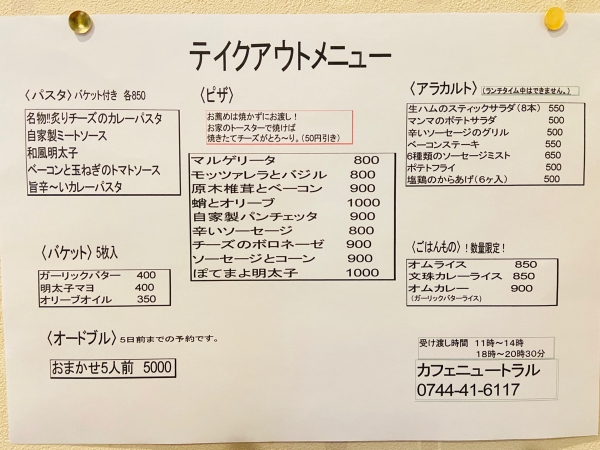 テイクアウトメニュー
〈パスタ〉バケット付き 各850
名物!!炙りチーズのカレーパスタ
自家製ミートソース
和風明太子
ベーコンと玉ねぎのトマトソース
旨辛～いカレーパスタ
〈バケット〉5枚入
ガーリックバター 400
明太子マヨ 400
オリーブオイル 350
〈オードブル〉5日前までの予約です。
おまかせ5人前 5000
〈ピザ〉
お薦めは焼かずにお渡し！
お家のトースターで焼けば
焼きたてチーズがとろ～り。(50円引き)
マルゲリータ 800
モッツァレラとバジル 800
原木椎茸とベーコン 900
蛸とオリーブ 1000
自家製パンチェッタ 900
辛いソーセージ 800
チーズのボロネーゼ 900
ソーセージとコーン 900
ぽてまよ明太子 1000
〈アラカルト〉(ランチタイム中はできません。)
生ハムのスティックサラダ(8本) 550
マンマのポテトサラダ 500
辛いソーセージのグリル 500
ベーコンステーキ 550
6種類のソーセージミスト 650
ポテトフライ 500
塩鶏のからあげ(6ヶ入) 500
〈ごはんもの〉！数量限定！
オムライス 850
文珠カレーライス 850
オムカレー 900
(ガーリックバターライス)
受け渡し時間 11時～14時
18時～20時30分
カフェニュートラル
0744-41-6117